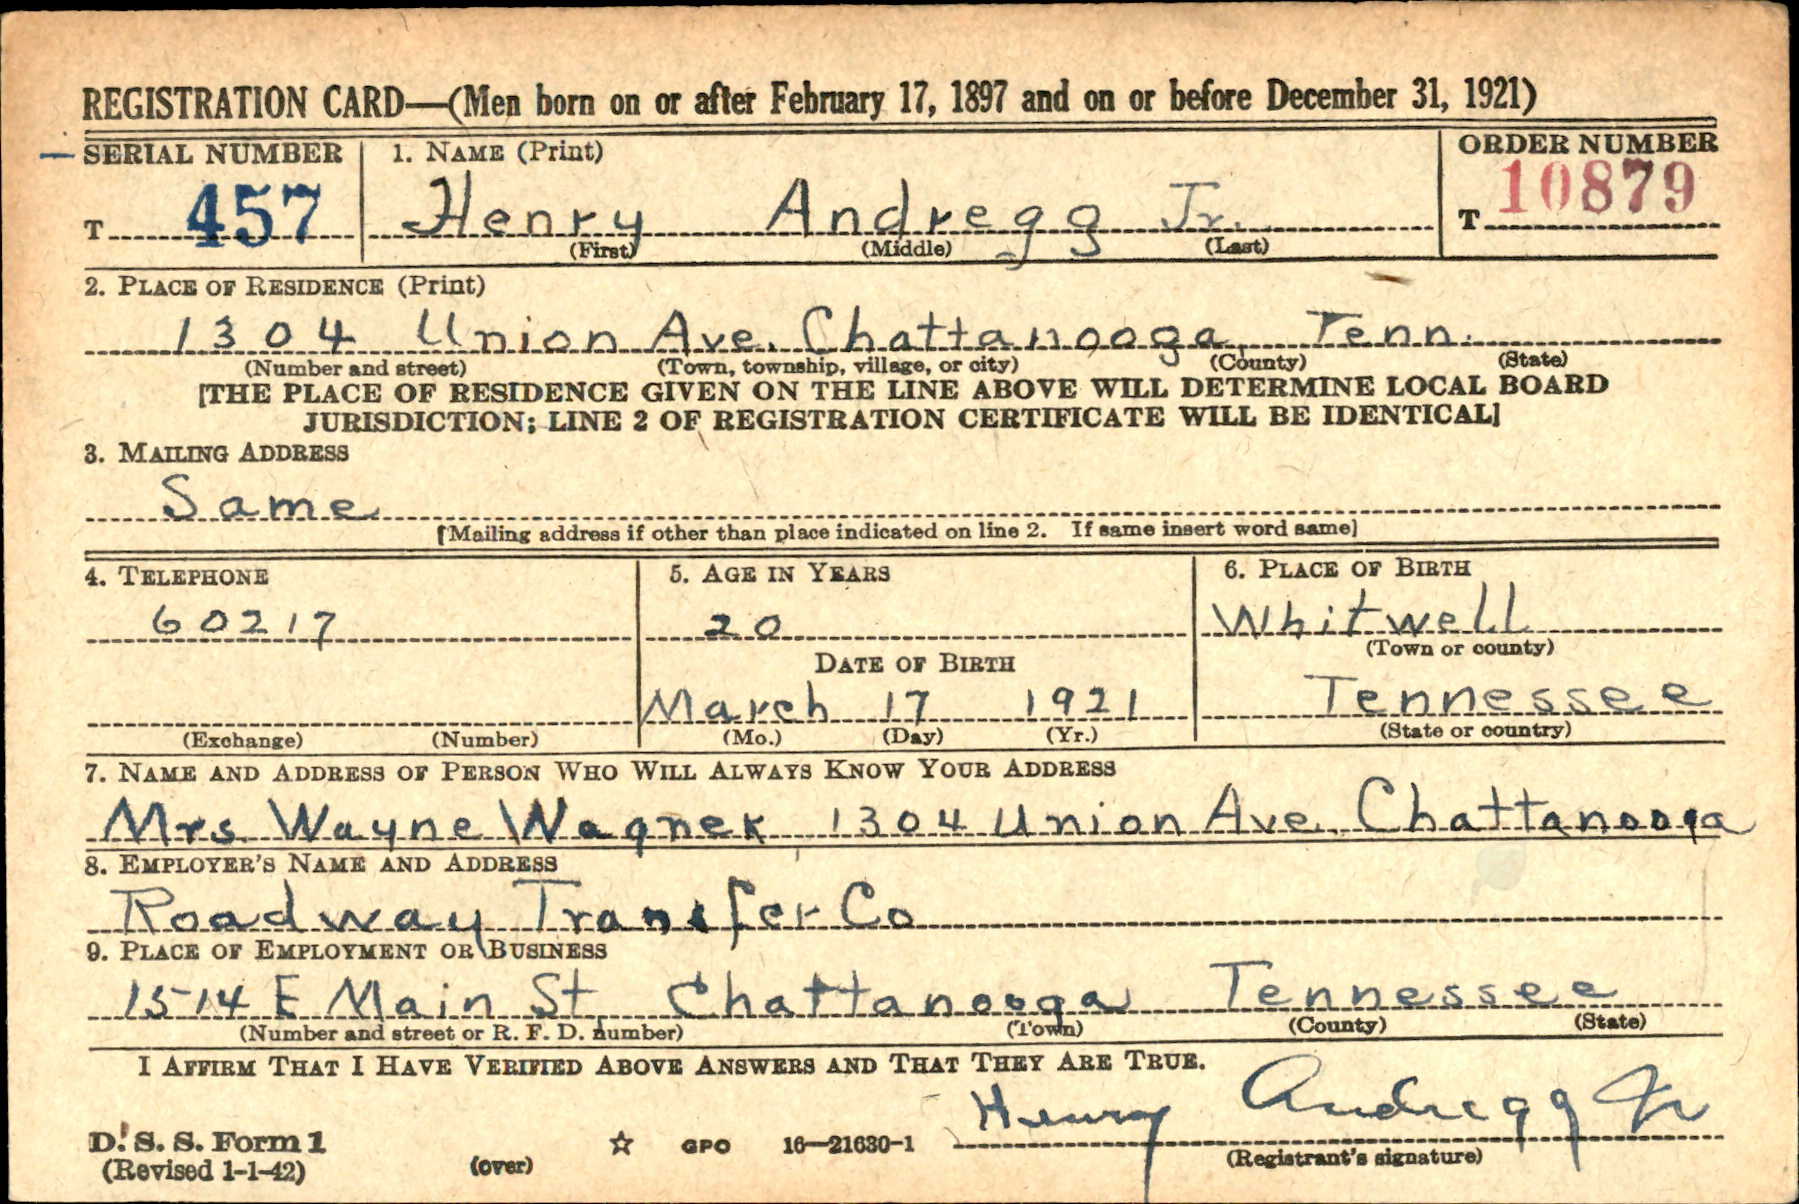 REGISTRATION CARD—(Men born on or after February 17, 1897 and on or before December 31, 1921)
SERIAL NUMBER 1. NAME (Print) ORDER NUMBER
T 457 Henry Andregg Jr. T 10879
(First) (Middle) (Last)
2. PLACE OF RESIDENCE (Print)
1304 Union Ave. Chattanooga, Tenn.
(Number and street) (Town, township, village, or city) (County) (State)
[THE PLACE OF RESIDENCE GIVEN ON THE LINE ABOVE WILL DETERMINE LOCAL BOARD
JURISDICTION; LINE 2 OF REGISTRATION CERTIFICATE WILL BE IDENTICAL]
3. MAILING ADDRESS
Same
[Mailing address if other than place indicated on line 2. If same insert word same]
4. TELEPHONE 5. AGE IN YEARS 6. PLACE OF BIRTH
60217 20 Whitwell
(Town or county)
DATE OF BIRTH
March 17 1921 Tennessee
(Exchange) (Number) (Mo.) (Day) (Yr.) (State or country)
7. NAME AND ADDRESS OF PERSON WHO WILL ALWAYS KNOW YOUR ADDRESS
Mrs. Wayne Wagner 1304 Union Ave. Chattanooga
8. EMPLOYER'S NAME AND ADDRESS
Roadway Transfer Co
9. PLACE OF EMPLOYMENT OR BUSINESS
1514 E Main St, Chattanooga Tennessee
(Number and street or R. F. D. number) (Town) (County) (State)
I AFFIRM THAT I HAVE VERIFIED ABOVE ANSWERS AND THAT THEY ARE TRUE.
Henry Andregg Jr
D. S. S. Form 1
(Revised 1-1-42) (over) ☆ GPO 16—21630-1 (Registrant's signature)